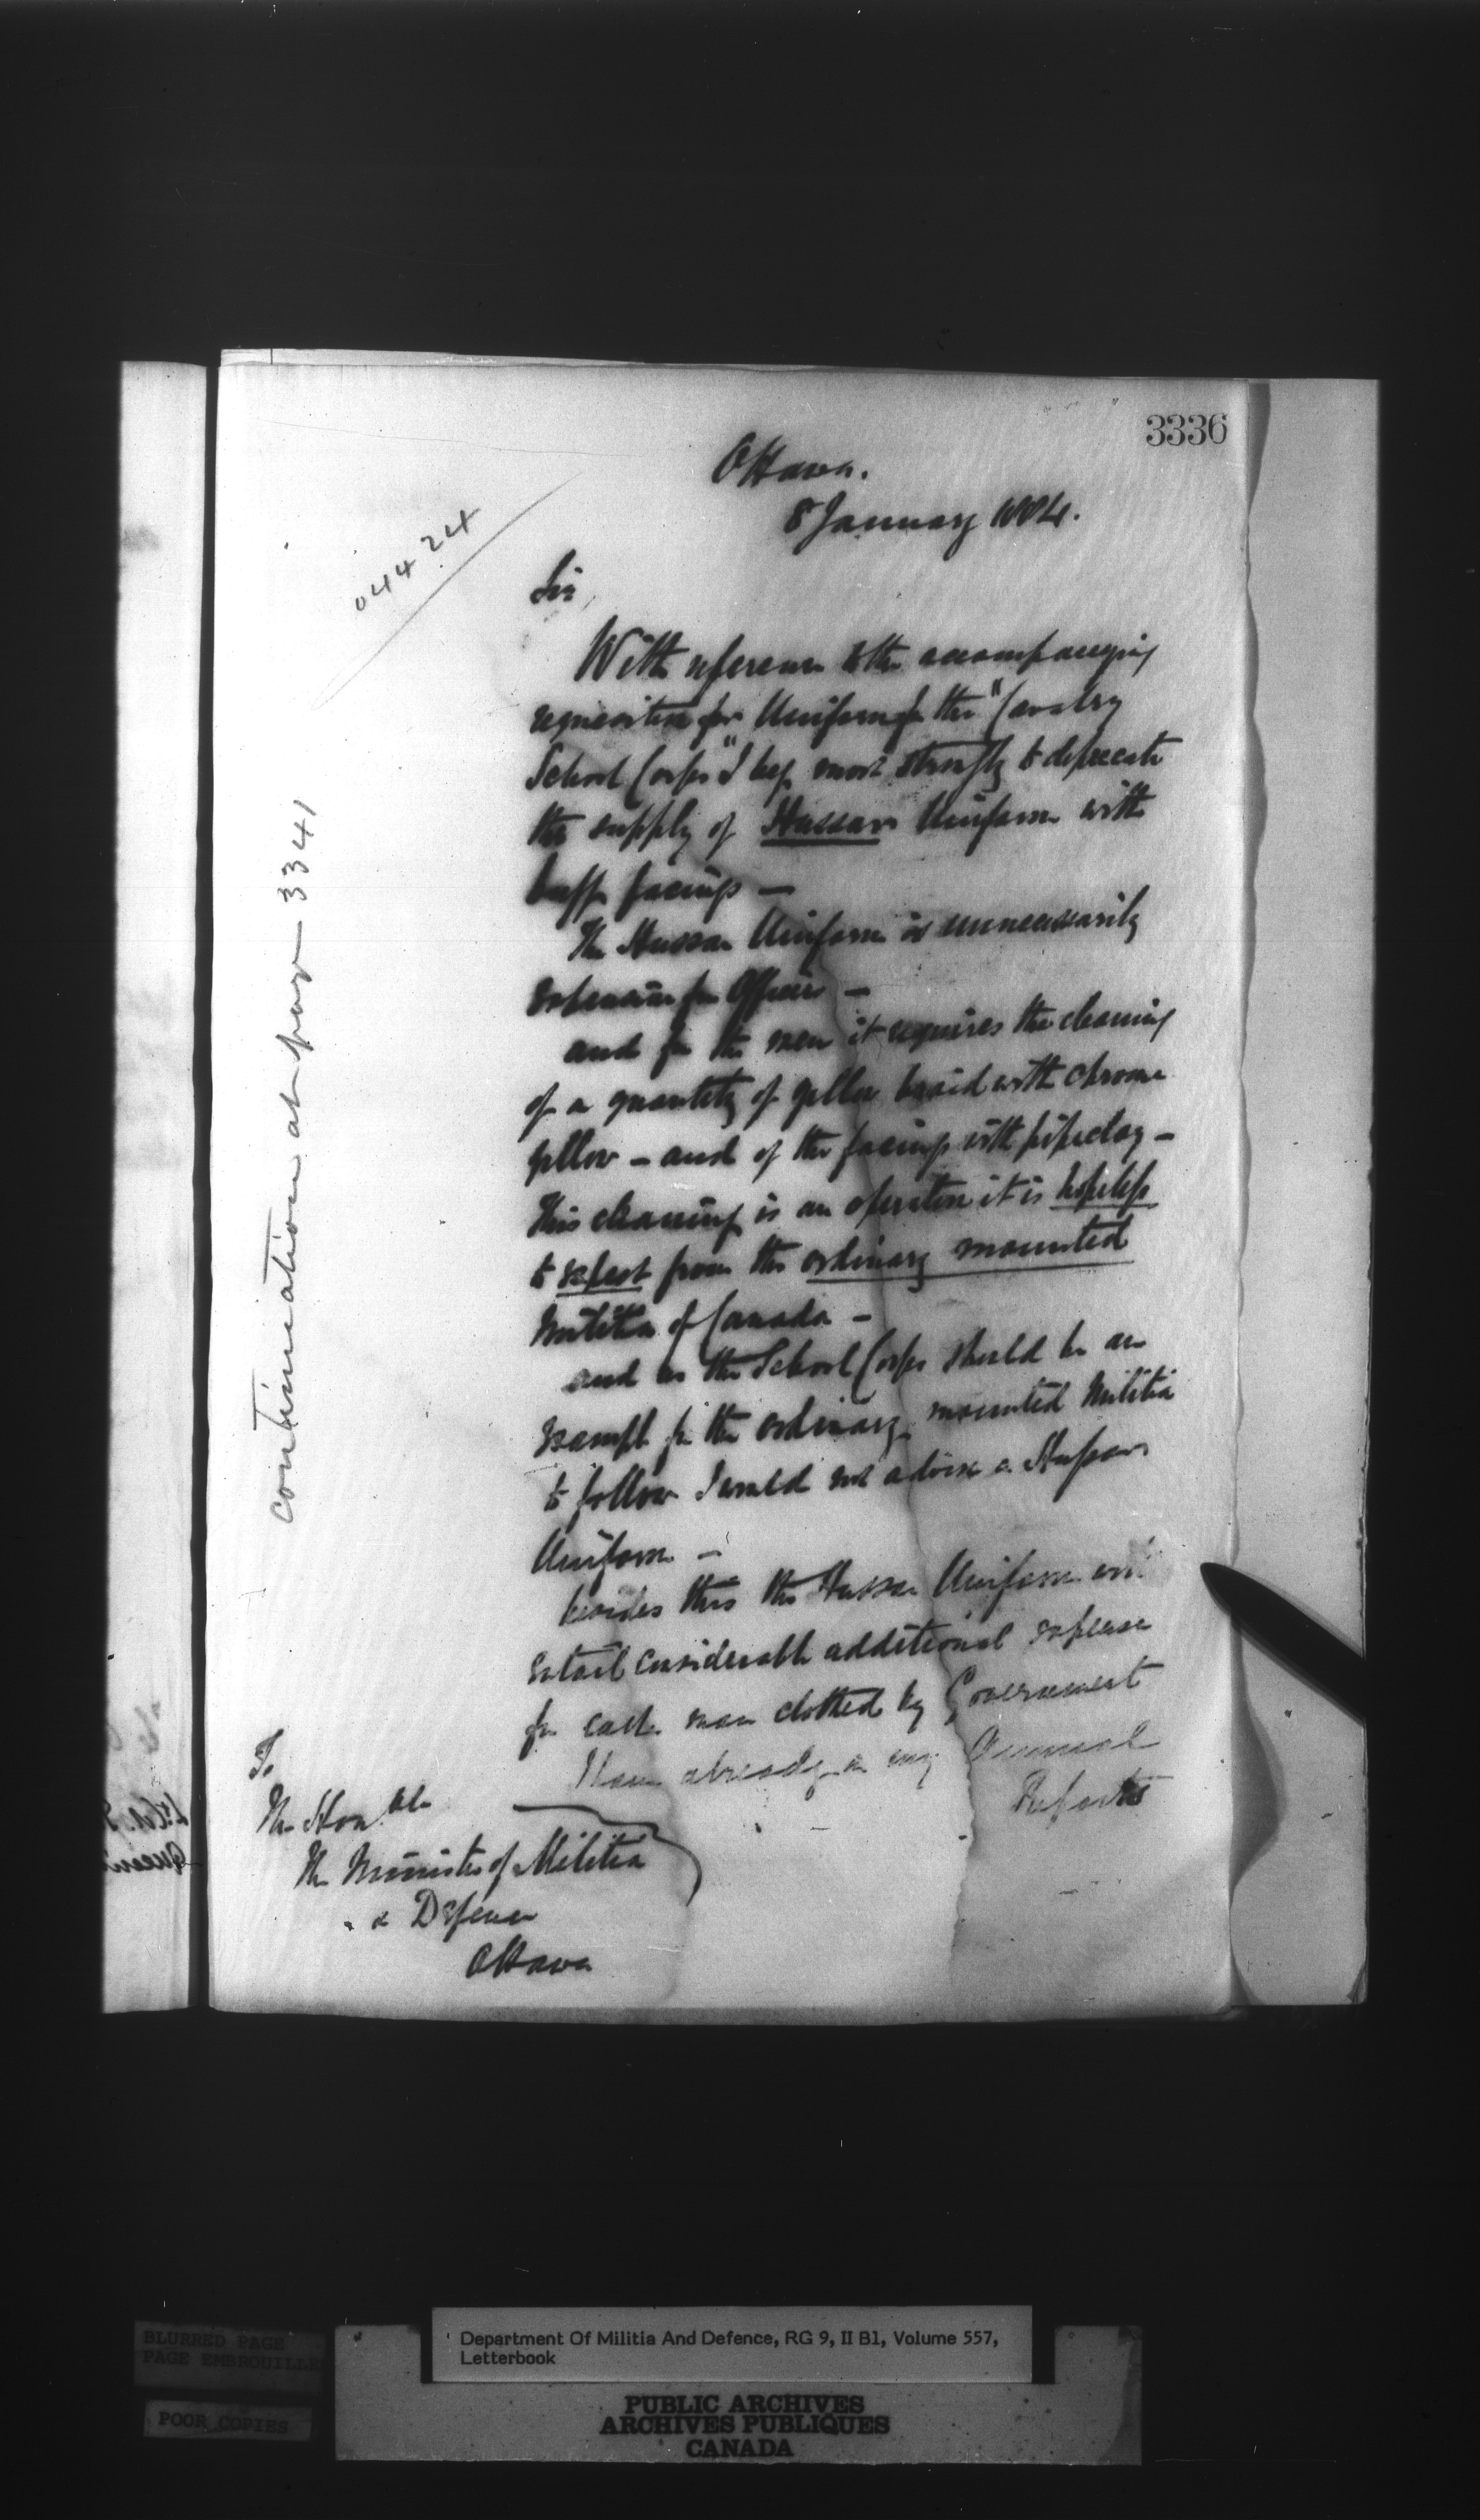 3336
Ottawa.
8 January 1884.
04424
Sir,
With reference to the accompanying
requisition for Uniform for the "Cavalry
School Corps" I beg most strongly to deprecate
the supply of Hussar Uniform with
buff facings —
The Hussar Uniform is unnecessarily
expensive for Officers —
and for the men it requires the cleaning
of a quantity of yellow braid with chrome
yellow — and of the facings with pipeclay —
This cleaning is an operation it is hopeless
to expect from the ordinary mounted
Militia of Canada —
and as the School Corps should be an
example for the ordinary mounted Militia
to follow I would not advise a Hussar
Uniform —
besides this the Hussar Uniform will
entail considerable additional expense
for each man clothed by Government
I have already in my Annual
Reports
To
The Honble
The Minister of Militia
& Defence
Ottawa
continuation at page 3341
BLURRED PAGE
PAGE EMBROUILLEE
POOR COPIES
Department Of Militia And Defence, RG 9, II B1, Volume 557,
Letterbook
PUBLIC ARCHIVES
ARCHIVES PUBLIQUES
CANADA